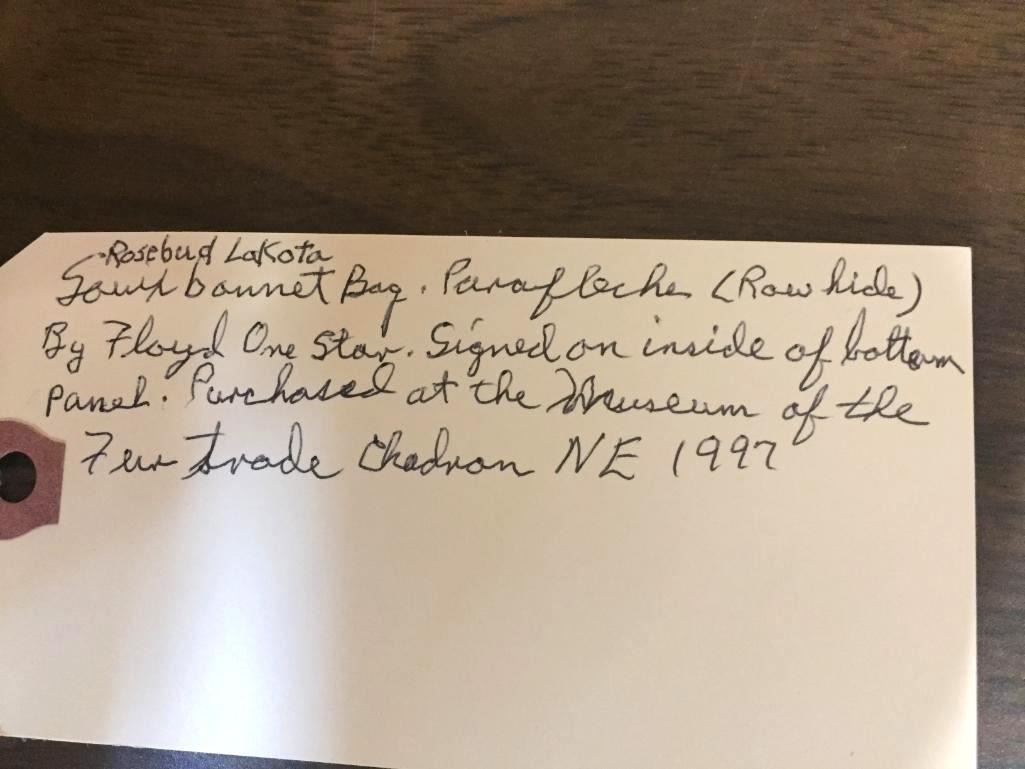 Rosebud Lakota
Souix bonnet Bag. Parafleche (Rawhide)
By Floyd One Star. Signed on inside of bottom
panel. Purchased at the Museum of the
Fur Trade Chadron NE 1997